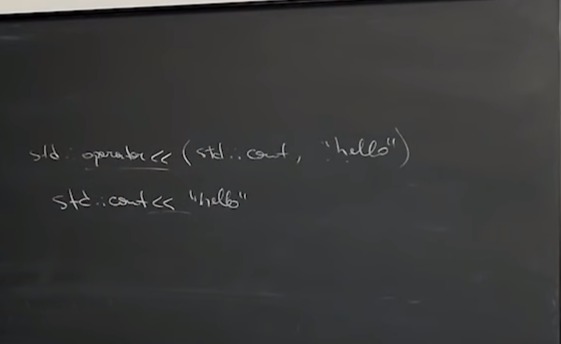 std::operator<< (std::cout, "hello")
std::cout << "hello"